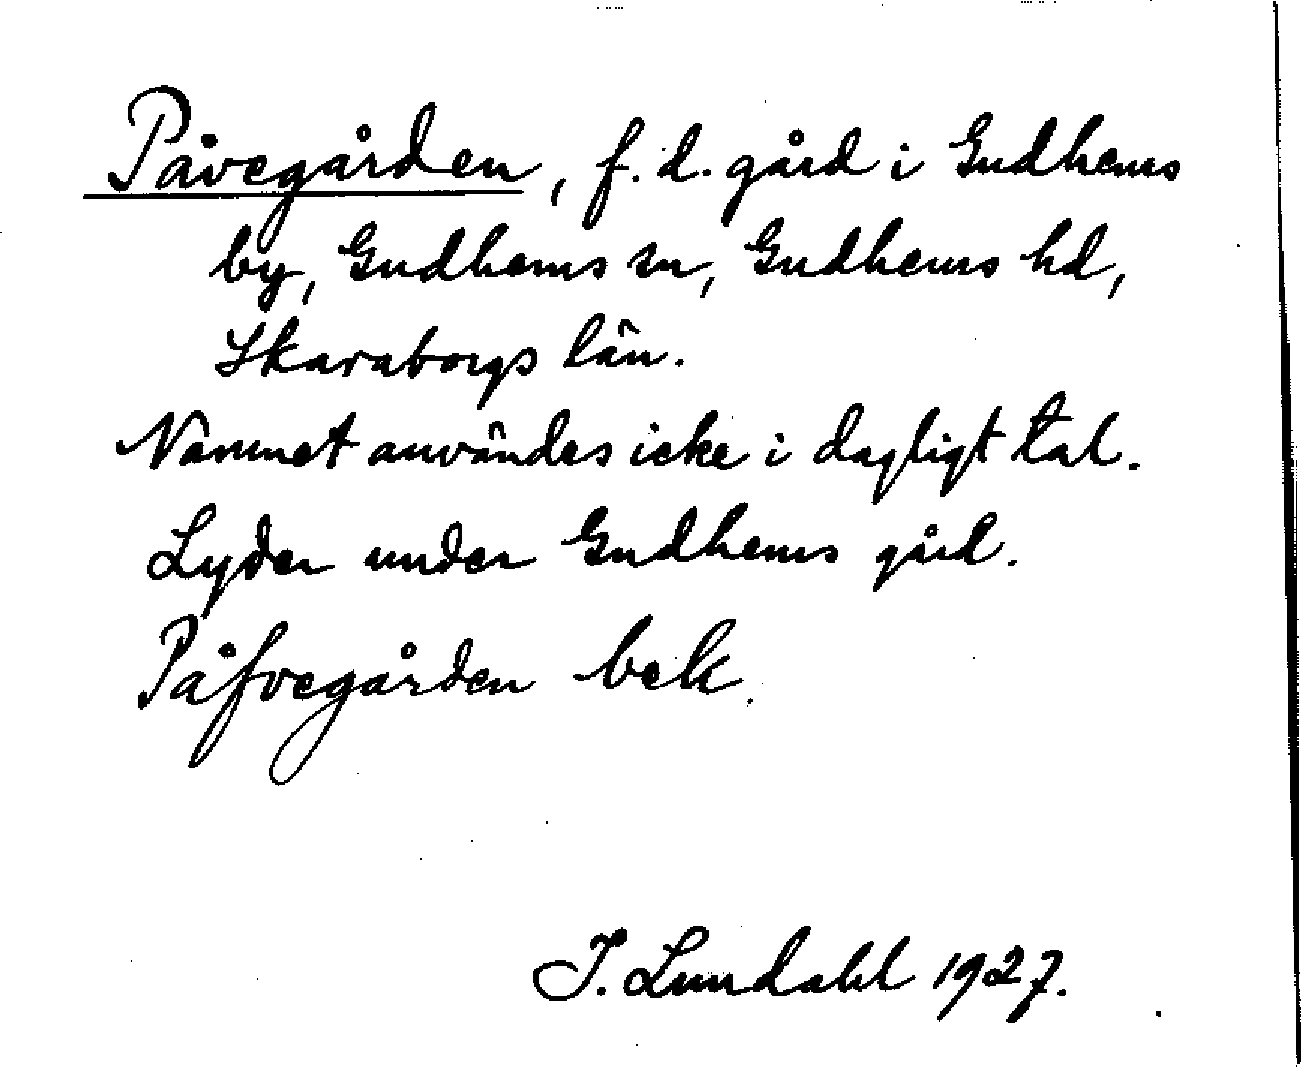 Påvegården, f.d. gård i Gudhems
by, Gudhems sn, Gudhems hd,
Skaraborgs län.
Namnet användes icke i dagligt tal.
Lyder under Gudhems gård.
Påfvegården bek.
I. Lundahl 1927.